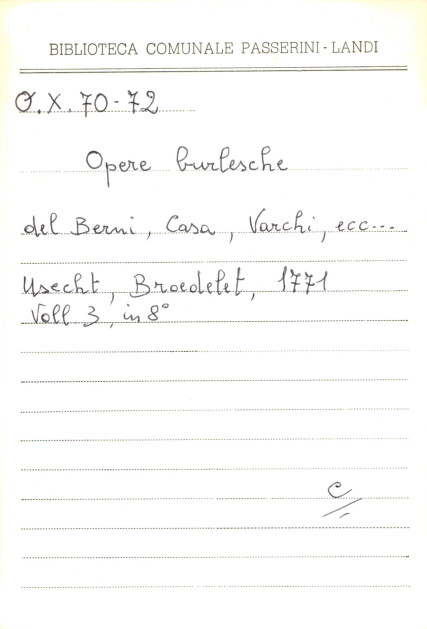 BIBLIOTECA COMUNALE PASSERINI - LANDI
O.X. 70-72
Opere burlesche
del Berni, Casa, Varchi, ecc...
Usecht, Broedelet, 1771
Voll 3, in 8°
C